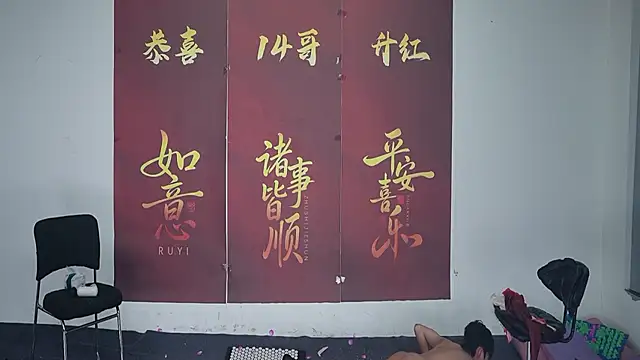 恭喜
14哥
升红
如意
RUYI
诸事皆顺
ZHUSHIJIESHUN
平安喜乐